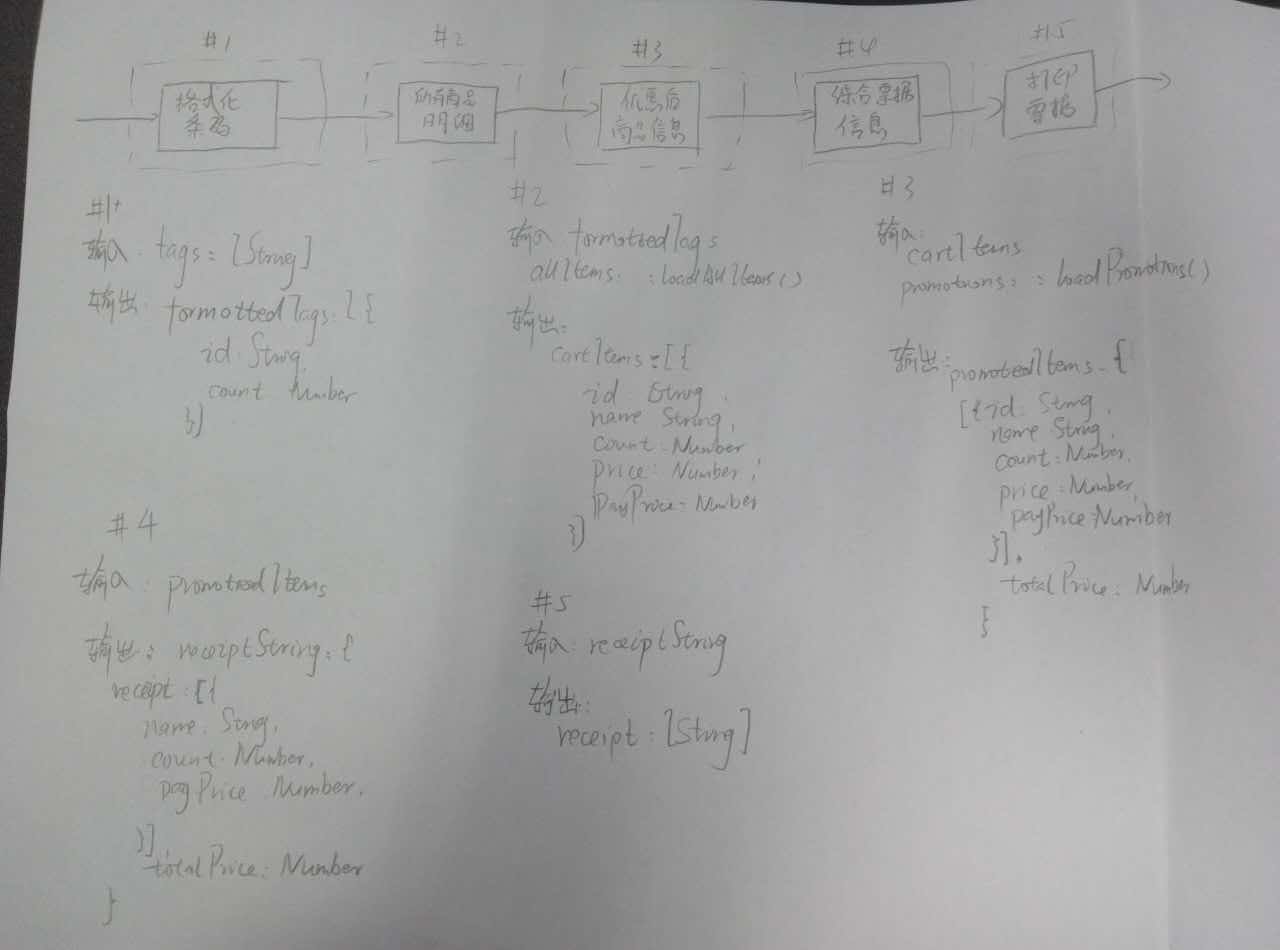 #1
#2
#3
#4
#5
格式化
条码
所有商品
明细
优惠后
商品信息
综合票据
信息
打印
票据
#1
输入: tags: [String]
输出: formattedTags: [{
id: String,
count: Number
}]
#2
输入: formattedTags
allItems: :loadAllItems()
输出:
cartItems: [{
id: String,
name: String,
count: Number
price: Number,
payPrice: Number
}]
#3
输入:
cartItems
promotions: : loadPromotions()
输出: promotedItems: {
[{id: String,
name: String,
count: Number,
price: Number,
payPrice: Number
}],
totalPrice: Number
}
#4
输入: promotedItems
输出: receiptString: {
receipt: [{
name: String,
count: Number,
payPrice: Number,
}]
totalPrice: Number
}
#5
输入: receiptString
输出:
receipt: [String]